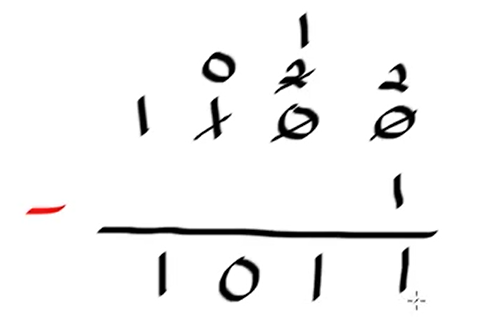 1
0 2 2
1 1 0 0
- 1
1 0 1 1